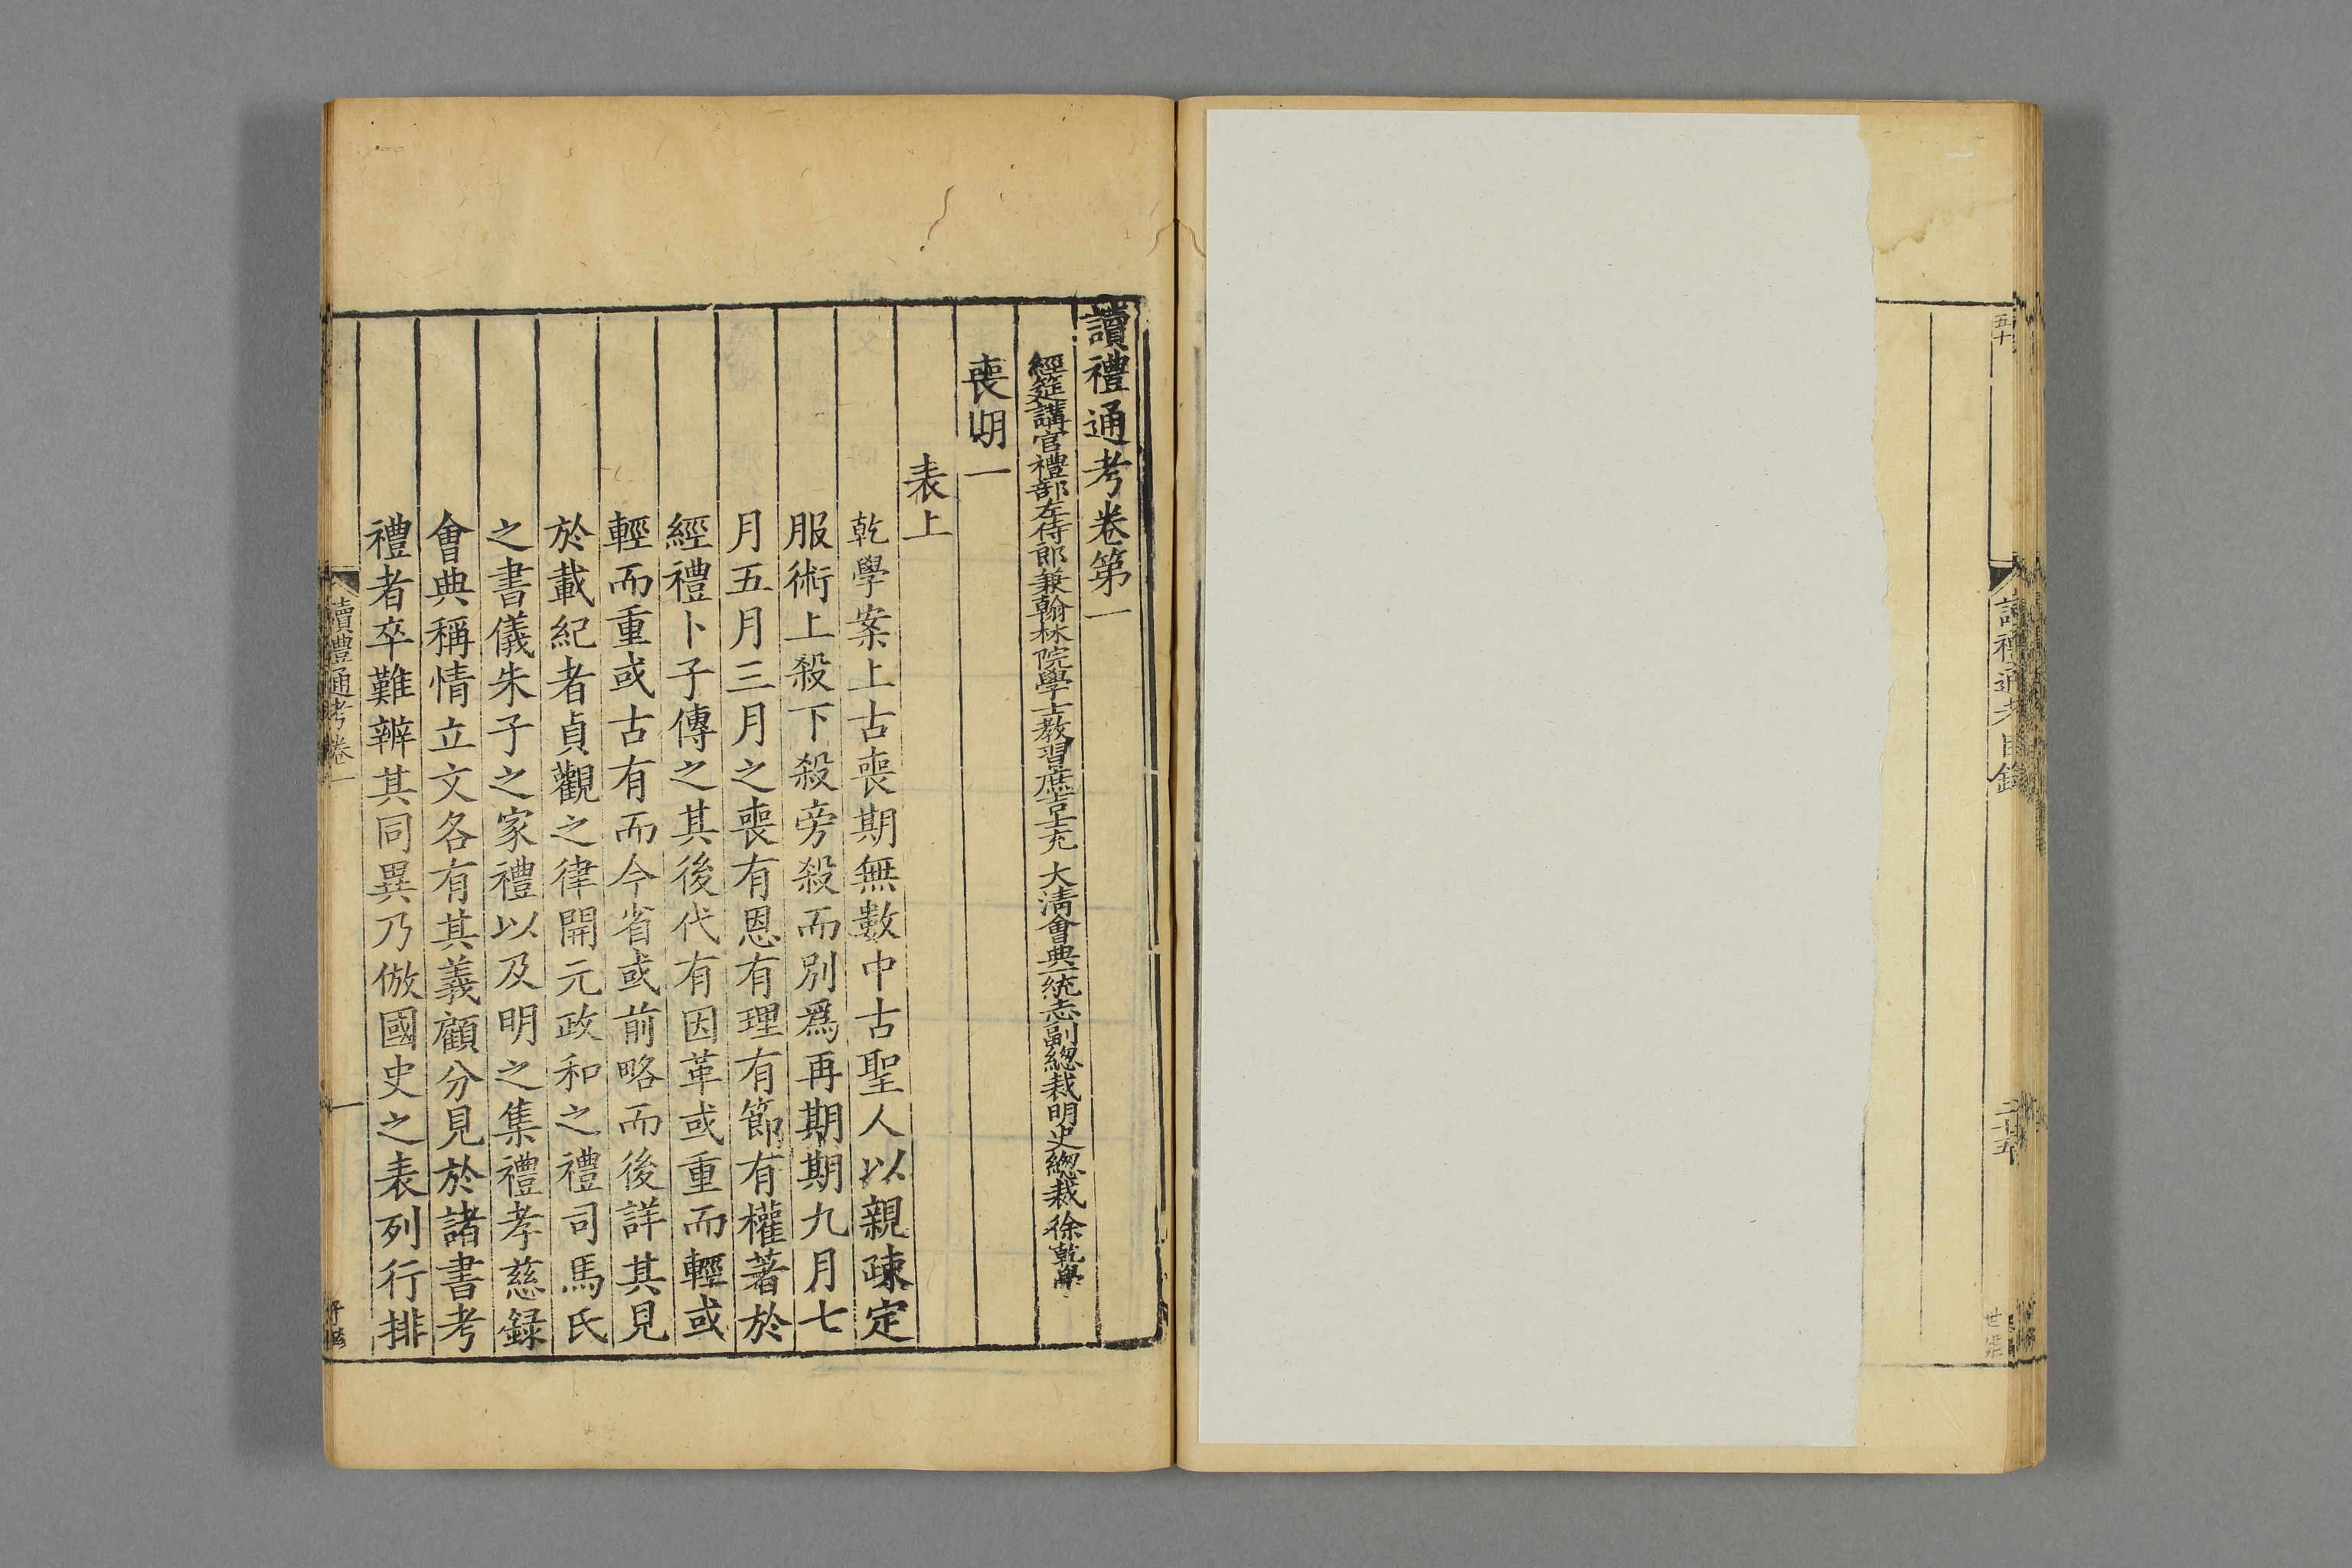 讀禮通考目錄
二十五
讀禮通考卷第一
經筵講官禮部左侍郎兼翰林院學士教習庶吉士充 大清會典一統志副總裁明史總裁徐乾學
喪朞一
表上
乾學案上古喪期無數中古聖人以親疎定
服術上殺下殺旁殺而別爲再期期九月七
月五月三月之喪有恩有理有節有權著於
經禮卜子傳之其後代有因革或重而輕或
輕而重或古有而今省或前略而後詳其見
於載紀者貞觀之律開元政和之禮司馬氏
之書儀朱子之家禮以及明之集禮孝慈錄
會典稱情立文各有其義顧分見於諸書考
禮者卒難辨其同異乃倣國史之表列行排
讀禮通考卷一
一